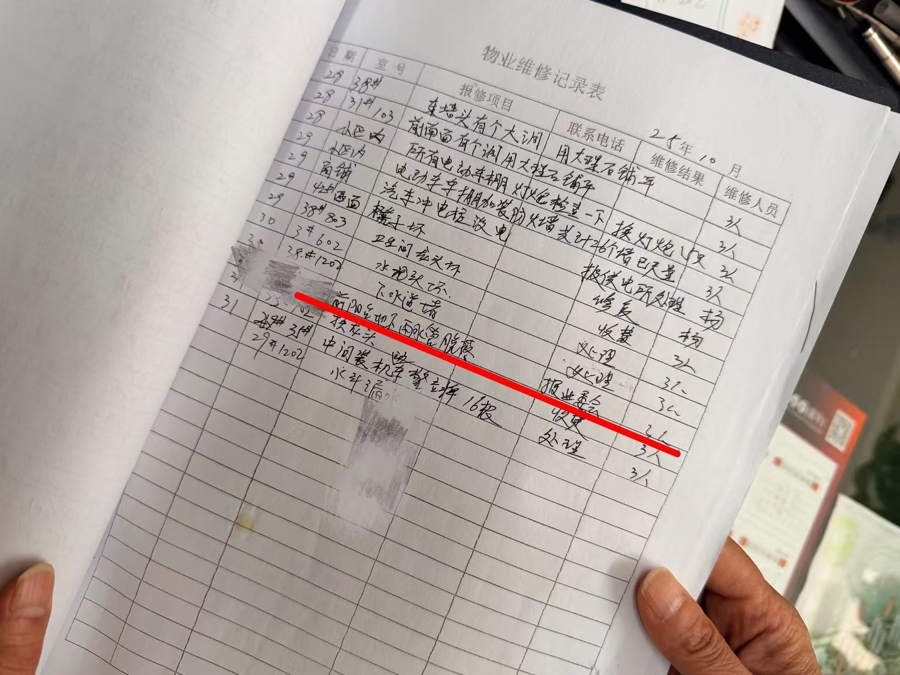 物业维修记录表
25年10月
日期 室号 报修项目 联系电话 维修结果 维修人员
28 38# 东墙头有个大洞 用大理石铺平 3人
28 31#103 前南面有个洞用大理石铺平 3人
28 小区内 所有电动车棚灯炮检查一下 换灯炮 3人
29 小区内 电动车车棚加装防火墙 3人
29 商铺 汽车冲电桩没电 被供电所处理 杨
29 42#西面 梯子坏 修复 杨
30 38#803 卫生间龙头坏 收费 3人
30 3#602 水视头坏 处理 3人
38#1202 下水道堵 处理 3人
报业委会 3人
31 换龙头 收费 3人
31# 中间装机车警示牌16根
29#1202 水斗漏水 处理 3人